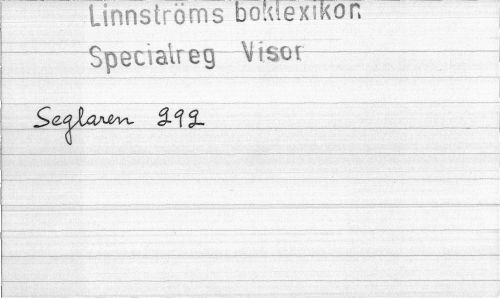 Linnströms boklexikon
Specialreg Visor
Seglaren 292